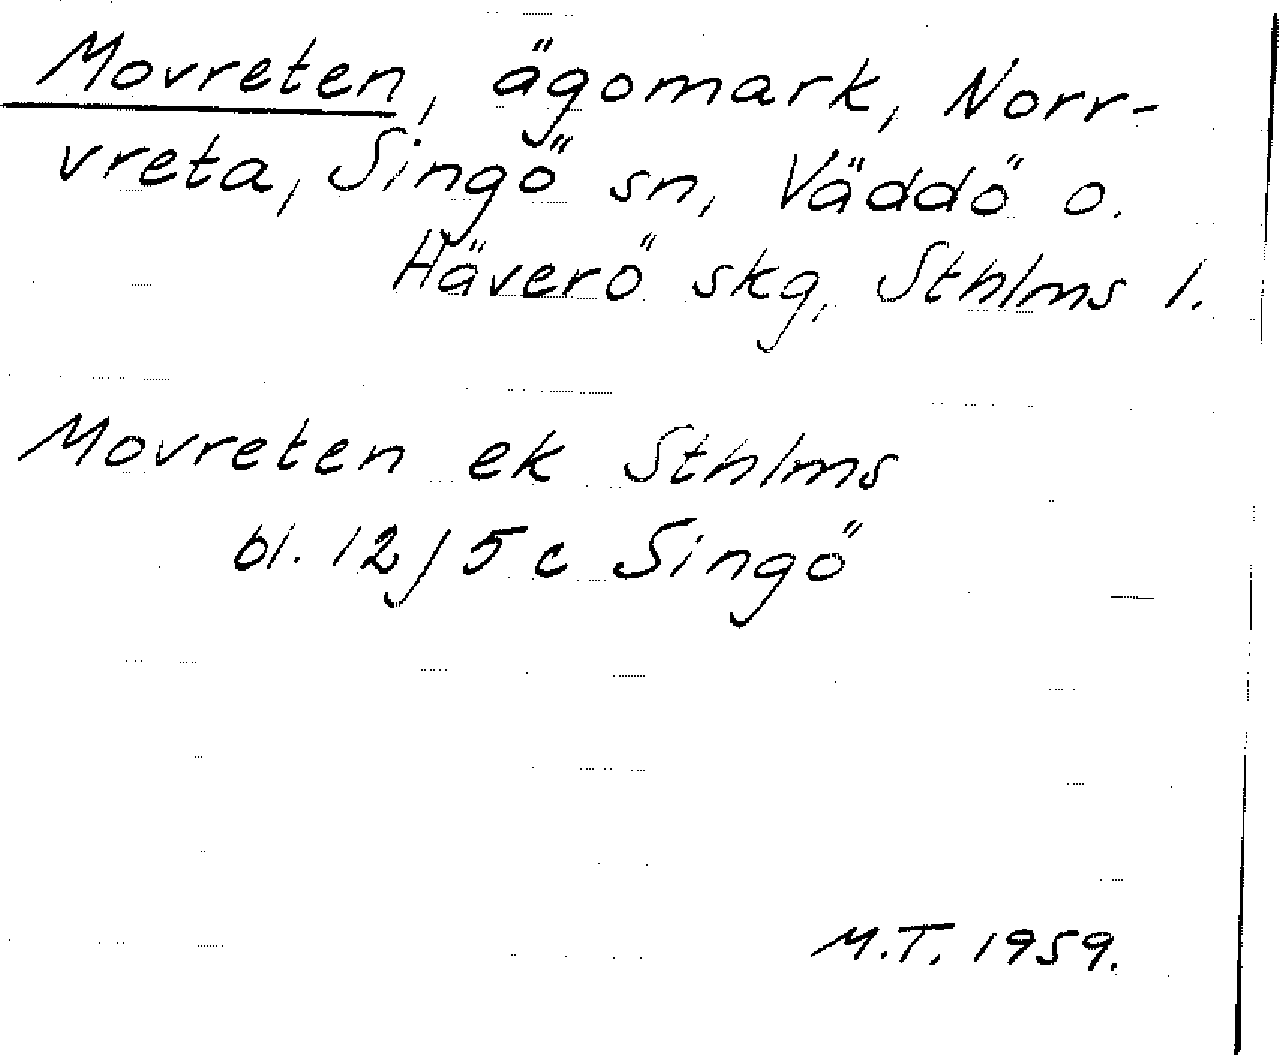 Movreten, ägomark, Norr-
vreta, Singö sn, Väddö o.
Häverö skg, Sthlms l.
Movreten ek Sthlms
bl. 12/5 c Singö
M.T. 1959.